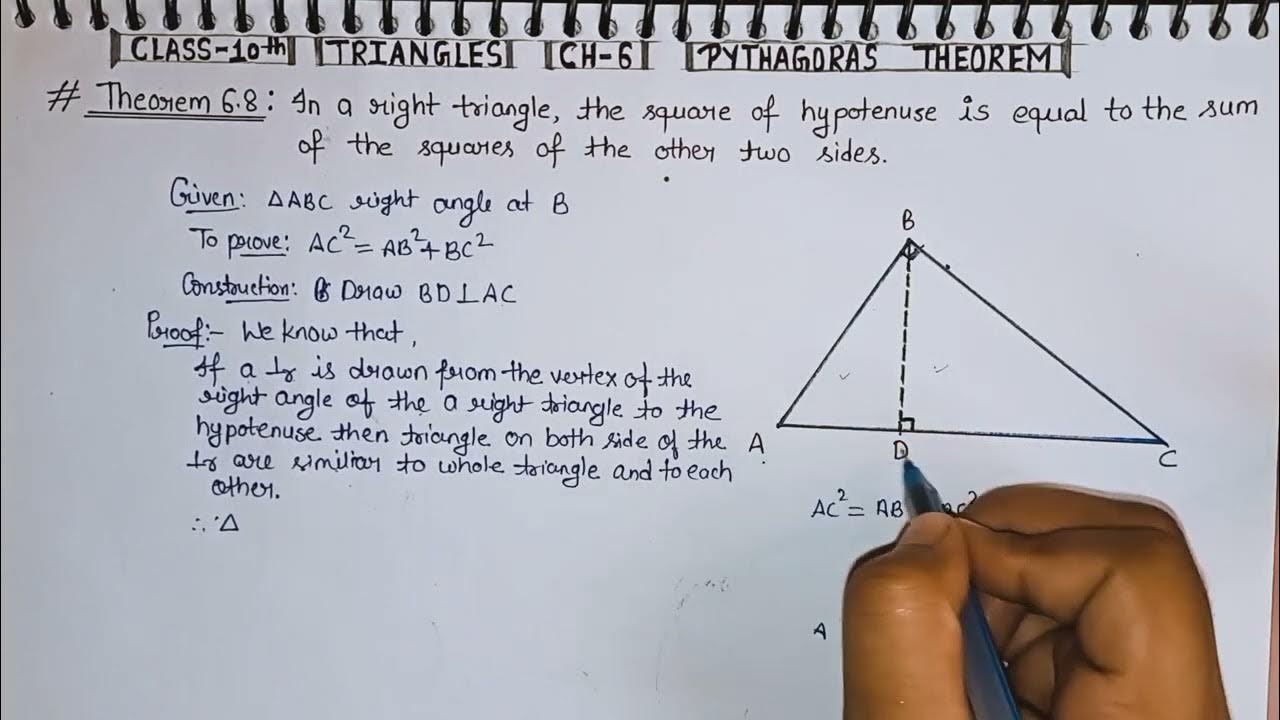 CLASS-10th TRIANGLES CH-6 PYTHAGORAS THEOREM
# Theorem 6.8: In a right triangle, the square of hypotenuse is equal to the sum
of the squares of the other two sides.
Given: △ABC right angle at B
To prove: AC²=AB²+BC²
Construction: Draw BD⊥AC
Proof:- We know that,
If a ⊥r is drawn from the vertex of the
right angle of the a right triangle to the
hypotenuse then triangle on both side of the
⊥r are similiar to whole triangle and to each
other.
∴ △
B
A
D
C
AC²= AB
A